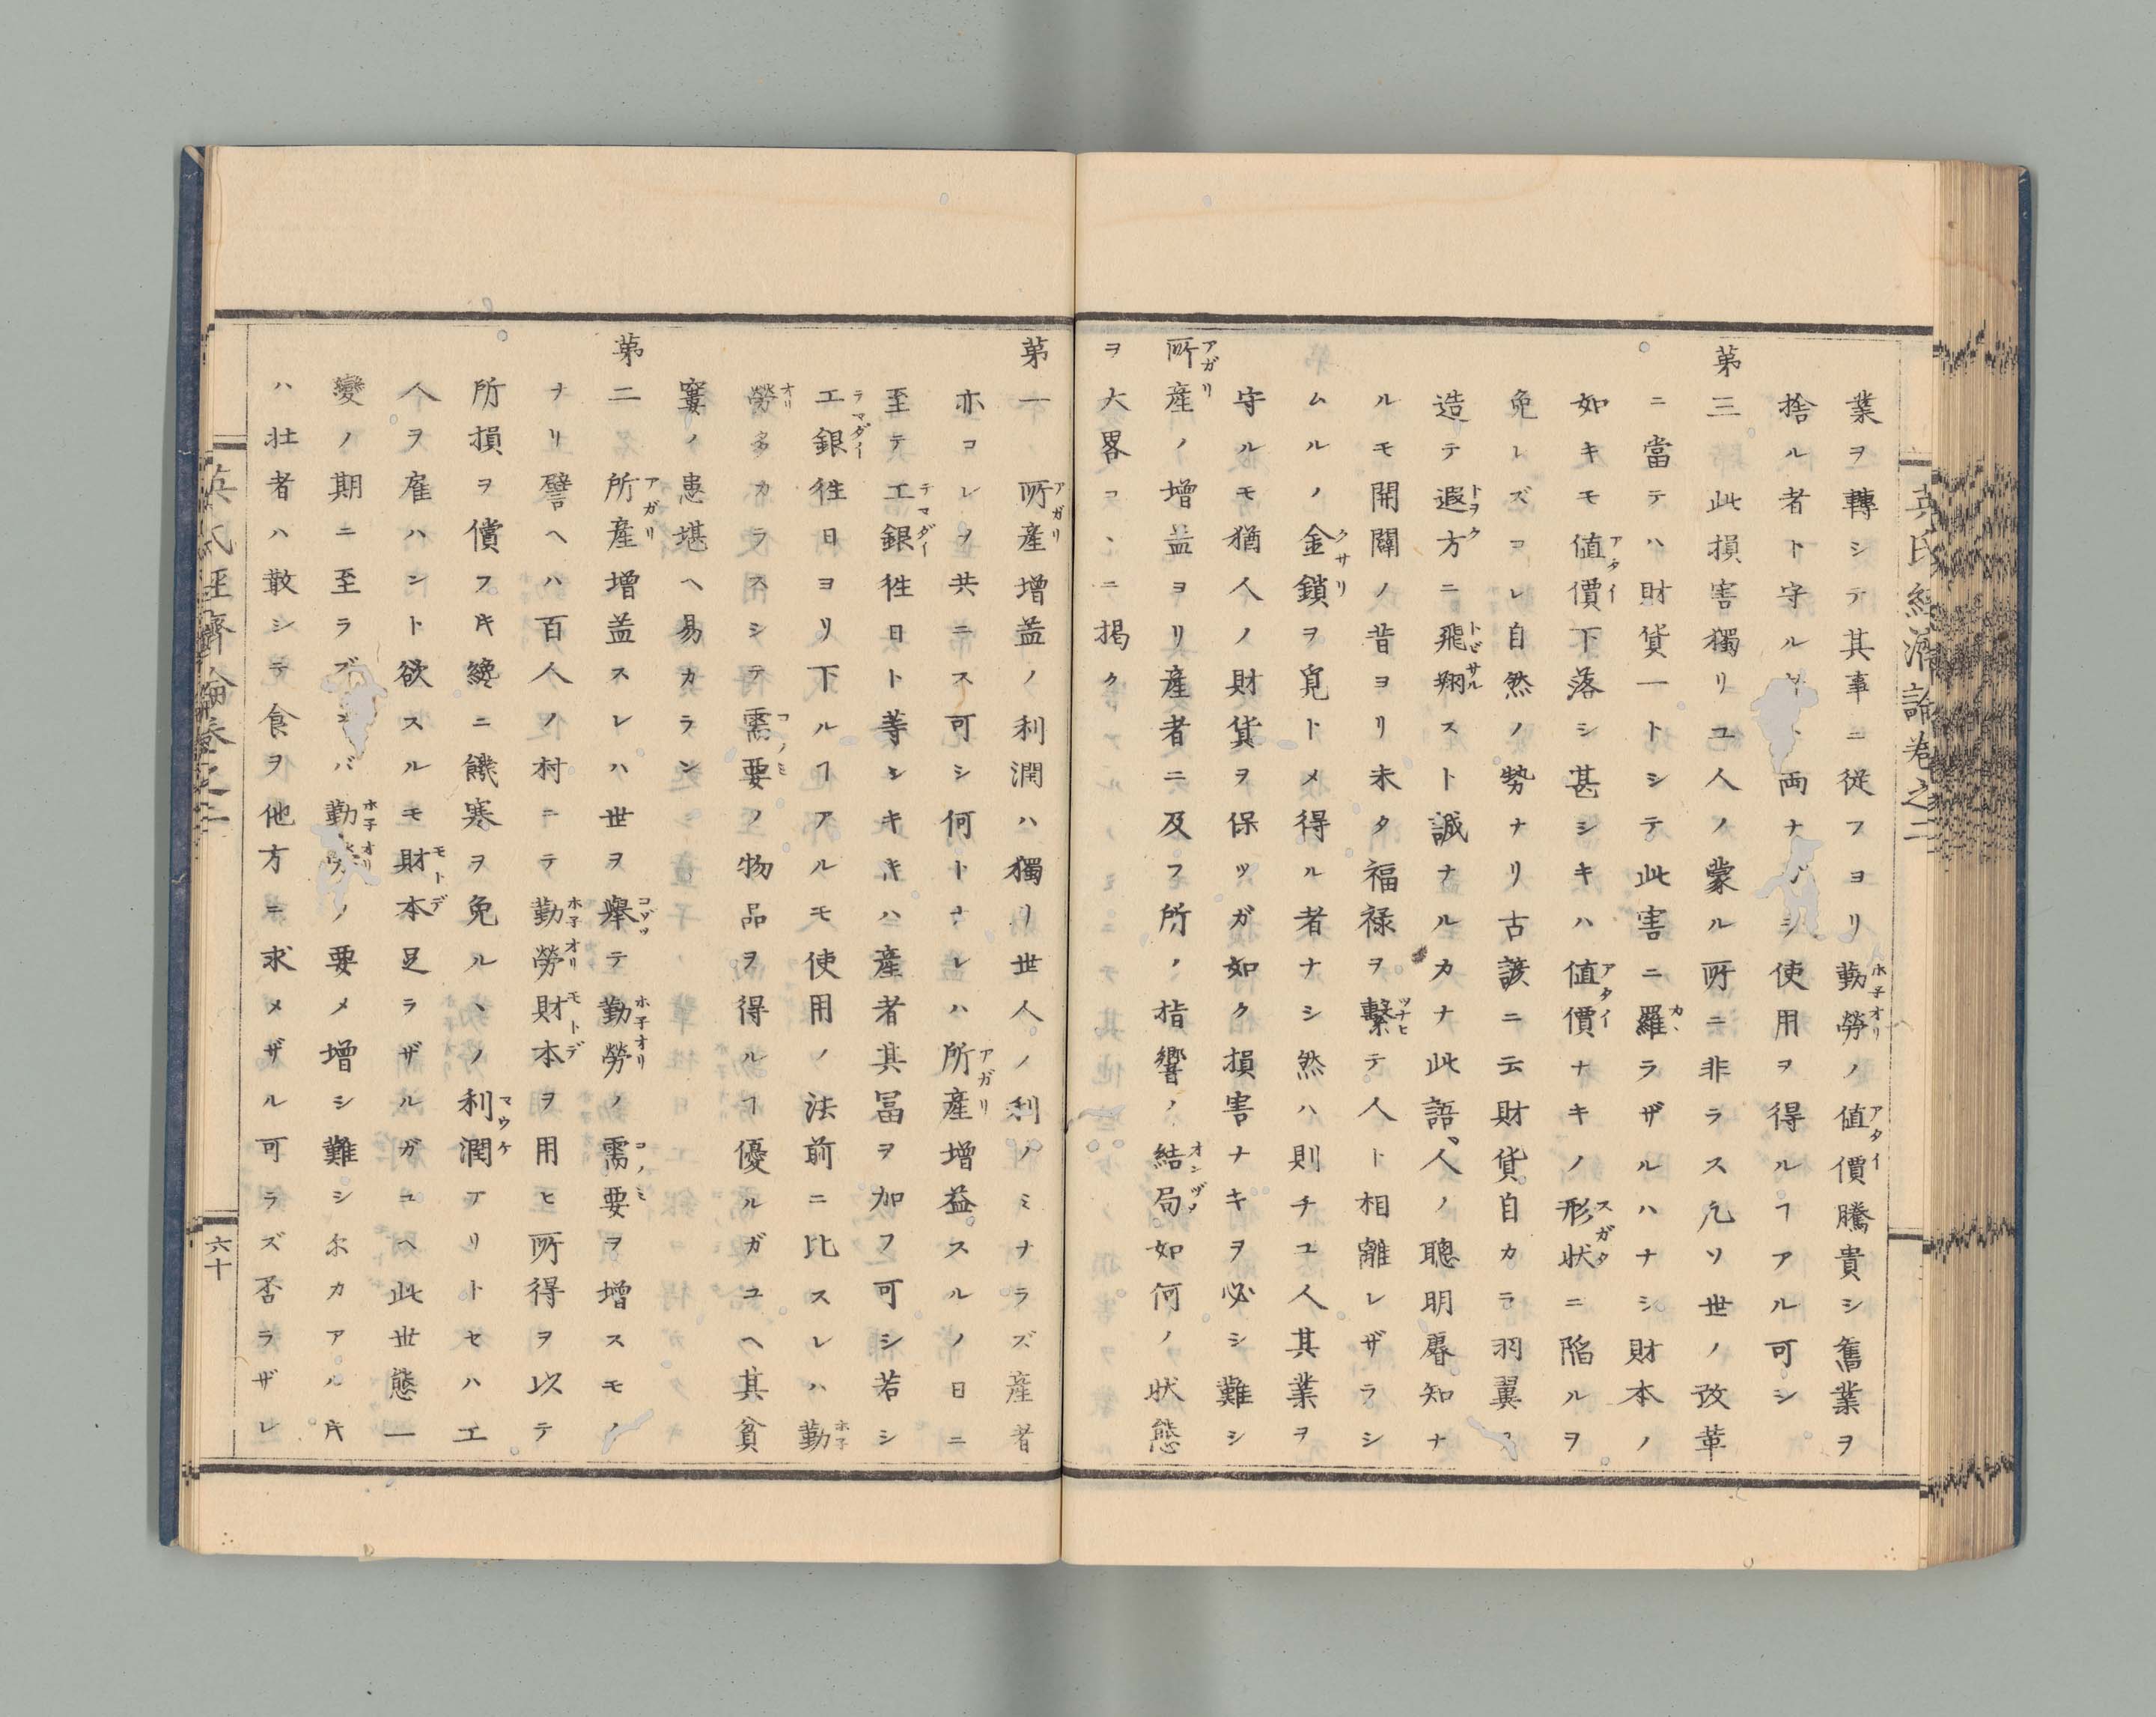 業ヲ轉シテ其事ニ從フヨリ勤勞ノ値價騰貴シ舊業ヲ
捨ル者ト守ル 両ナ シ使用ヲ得ルヿアル可シ
第三此損害獨リユ人ノ蒙ル所ニ非ラス凢ソ世ノ改革
ニ當テハ財貨一トシテ此害ニ羅ラザルハナシ財本ノ
如キモ値價下落シ甚シキハ値價ナキノ形状ニ陷ルヲ
免レズコレ自然ノ勢ナリ古諺ニ云財貨自カラ羽翼
造テ遐方ニ飛翔スト誠ナルカナ此語、人ノ聰明睿知ナ
ルモ開闢ノ昔ヨリ未タ福禄ヲ繋テ人ト相離レザラシ
ムルノ金鎖ヲ覓トメ得ル者ナシ然ハ則チユ人其業ヲ
守ルモ猶人ノ財貨ヲ保ツガ如ク損害ナキヲ必シ難シ
所産ノ増益ヨリ産者ニ及フ所ノ指響ノ結局如何ノ状態
ヲ大畧コヽニ掲ク
第一所産増益ノ利潤ハ獨リ世人ノ利ノミナラズ産者
亦コレヲ共ニス可シ何トナレハ所産増益スルノ日ニ
至テ工銀徃日ト等シキキハ産者其冨ヲ加フ可シ若シ
工銀徃日ヨリ下ルヿアルモ使用ノ法前ニ比スレハ勤
勞多カラスシテ需要ノ物品ヲ得ルヿ優ルガユヘ其貧
窶ノ患堪ヘ易カラン
第二所産増益スレハ世ヲ舉テ勤勞ノ需要ヲ増スモノ
ナリ譬ヘハ百人ノ村ニテ勤勞財本ヲ用ヒ所得ヲ以テ
所損ヲ償フ𪜈纔ニ饑寒ヲ免ルヽノ利潤アリトセハ工
人ヲ雇ハント欲スルモ財本足ラザルガユヘ此世態一
變ノ期ニ至ラズ バ勤 ノ要メ増シ難シ尓カアル𪜈
ハ壮者ハ散シテ食ヲ他方ニ求メザル可ラズ否ラザレ
英氏經濟論卷之二
英氏經濟論卷之二
六十